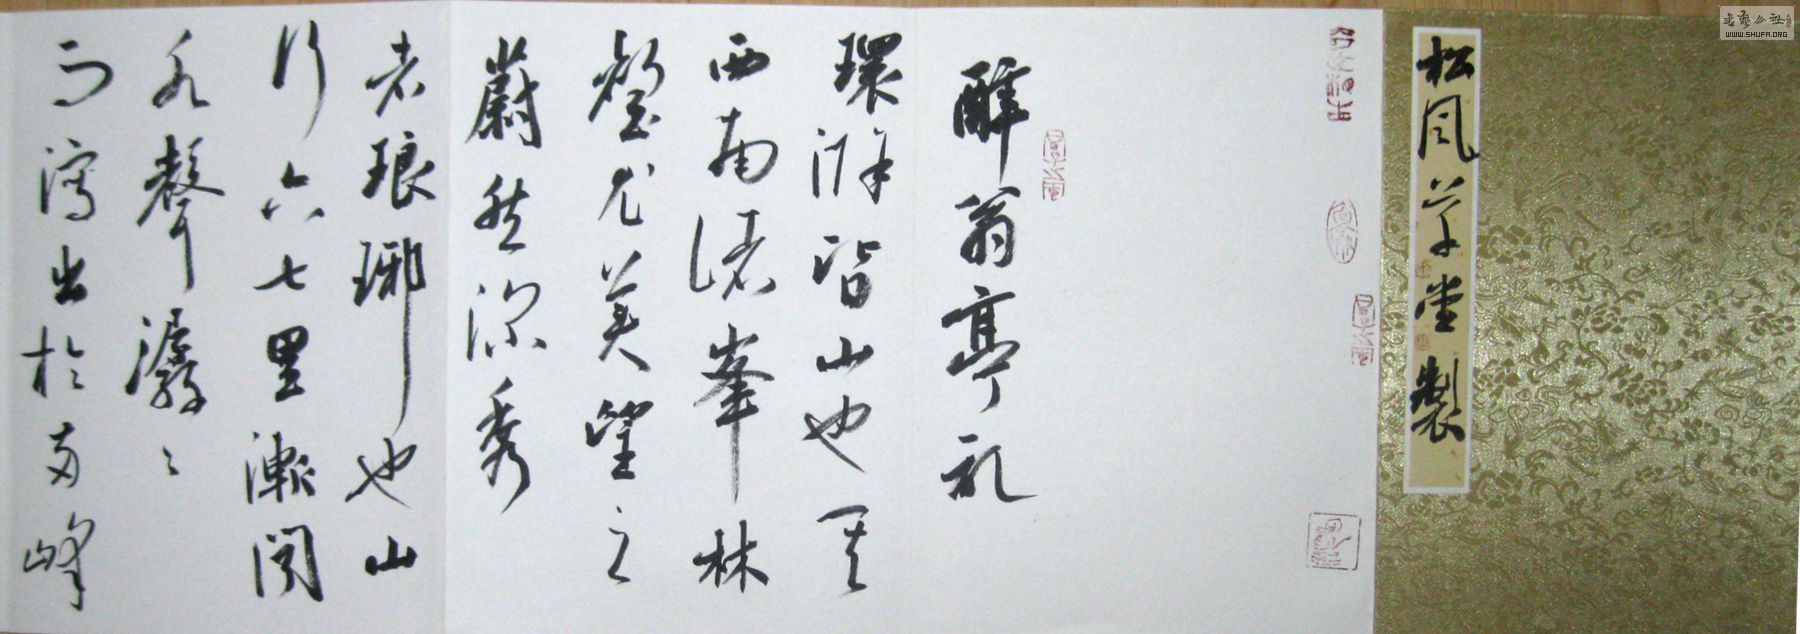 松风草堂製
醉翁亭记
環滁皆山也其
西南諸峯林
壑尤美望之
蔚然深秀
者琅琊也山
行六七里漸聞
水聲潺々
而瀉出於两峰
書藝公社
WWW.SHUFA.ORG